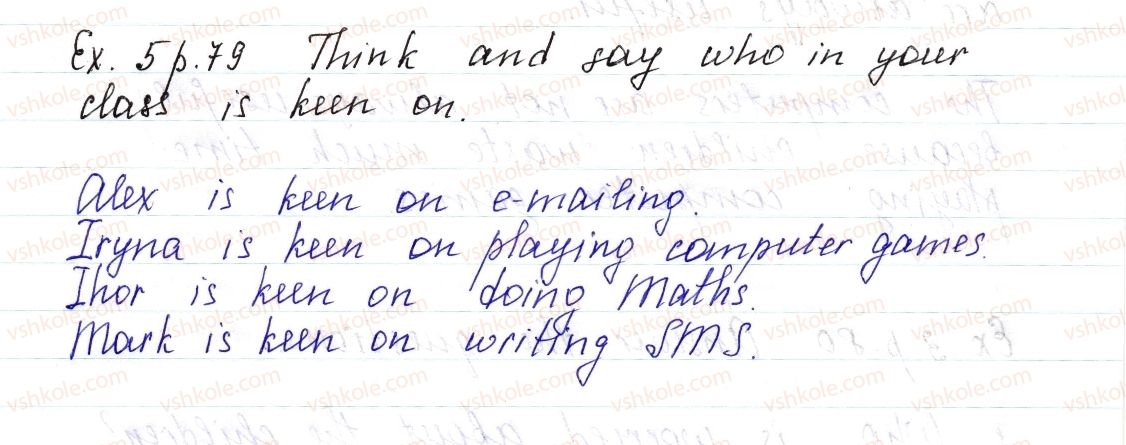 Ex. 5 p. 79 Think and say who in your
class is keen on.
Alex is keen on e-mailing.
Iryna is keen on playing computer games.
Ihor is keen on doing Maths.
Mark is keen on writing SMS.